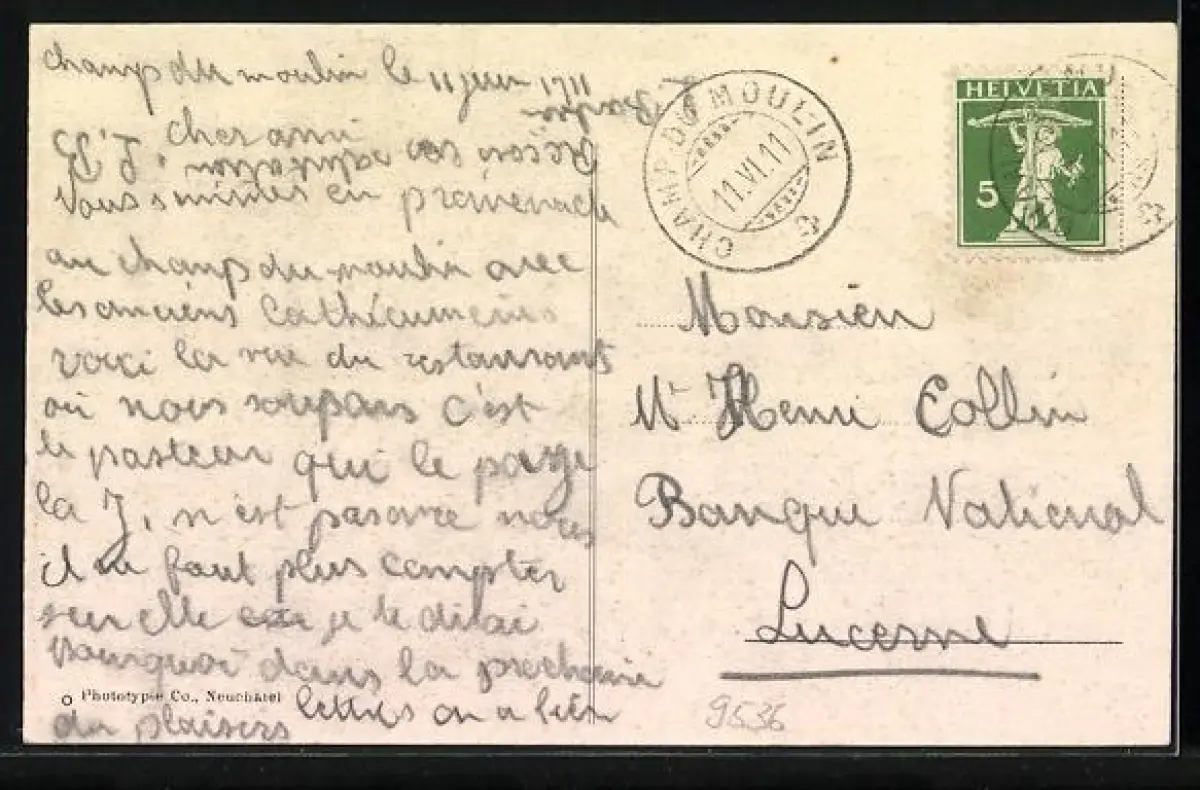 Champ du moulin le 11 juin 1911
Cher ami
Nous sommes en promenade
au champ du moulin avec
les anciens Cathécumènes
voici la vue du restaurant
où nous soupons c'est
le pasteur qui le paye
la J, n'est pas avec nous
il ne faut plus compter
sur elle je te dirai
Pourquoi dans la prochaine
lettres on a bien
du plaisers
Phototypie Co., Neuchatel
CHAMP DU MOULIN
11.VI.11
HELVETIA
5
Monsieur
Mr Henri Collin
Banque National
Lucerne
9536